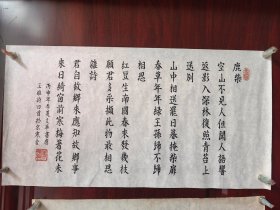 鹿柴
空山不見人但聞人語響
返影入深林復照青苔上
送別
山中相送罷日暮掩柴扉
春草年年綠王孫歸不歸
相思
紅豆生南國春來發幾枝
願君多采擷此物最相思
雜詩
君自故鄉來應知故鄉事
來日綺窗前寒梅著花未
丙申年
王維詩四首於京